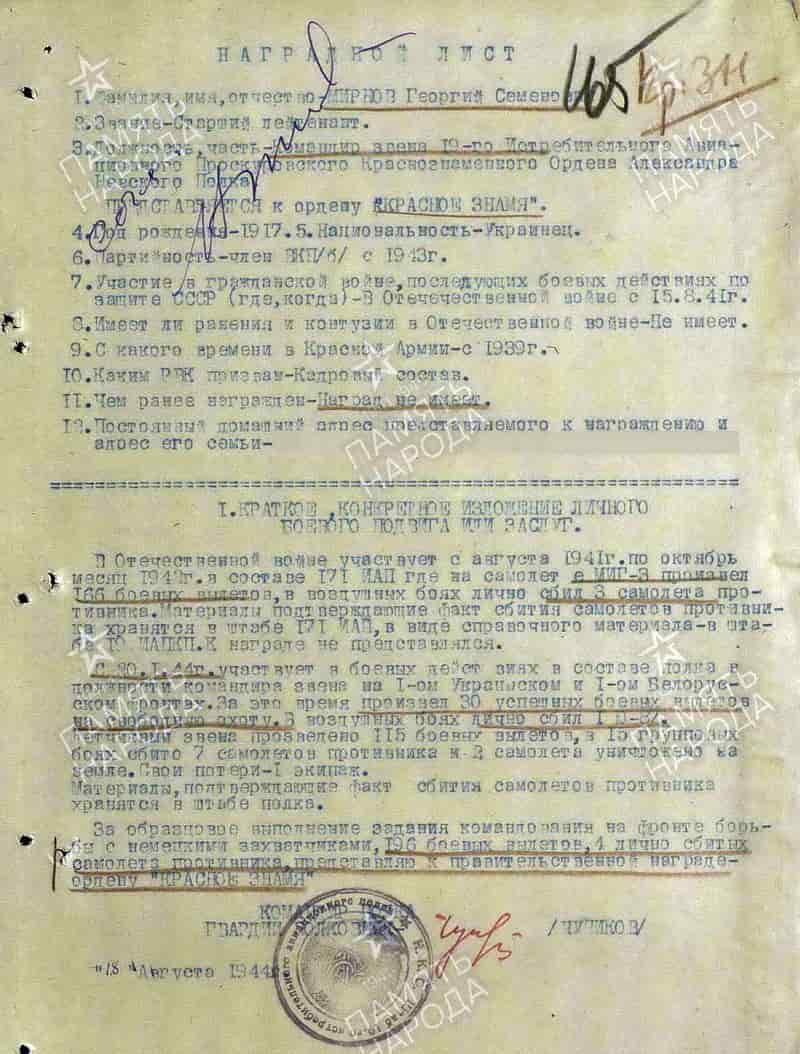 НАГРАДНОЙ ЛИСТ
165
Кр. 311
1. Фамилия, имя, отчество-МИРНОВ Георгий
2. Звание-Старший лейтенант.
3. Должность, часть-Командир звена 19-го Истребительного Авиа-
ционного Проскуровского Краснознаменного Ордена Александра
Невского Полка
ПРЕДСТАВЛЯЕТСЯ к ордену "КРАСНОЕ ЗНАМЯ".
4. Год рождения-1917. 5. Национальность-Украинец.
6. Партийность-член ВКП/б/ с 1943г.
7. Участие в гражданской войне, последующих боевых действиях по
защите СССР (где, когда)-В Отечечественной войне с 15.8.41г.
8. Имеет ли ранения и контузии в Отечественной войне-Не имеет.
9. С какого времени в Красной Армии-с 1939г.
10. Каким РВК призван-Кадровый состав.
11. Чем ранее награжден-Наград не имеет.
12. Постоянный домашний адрес представляемого к награждению и
адрес его семьи-
1. КРАТКОЕ, КОНКРЕТНОЕ ИЗЛОЖЕНИЕ ЛИЧНОГО
БОЕВОГО ПОДВИГА ИЛИ ЗАСЛУГ.
В Отечественной войне участвует с августа 1941г. по октябрь
месяц в составе 171 ИАП где на самолет е МИГ-3 произвел
166 боевых вылетов, в воздушных боях лично сбил 3 самолета про-
тивника. Материалы подтверждающие факт сбития самолетов противни-
ка хранятся в штабе 171 ИАП, в виде справочного материала-в шта-
бе К награде не представлялся.
С 20.1.44г. участвует в боевых дейст виях в составе полка в
должности командира звена на I-ом Украинском и I-ом Белорус-
ском фронтах. За это время произвел 30 успешных боевых вылетов
на свободную охоту. В воздушных боях лично сбил
Летчиками звена прозведено 115 боевых вылетов, в 15 групповых
боях сбито 7 самолетов противника и 2 самолета уничтожено на
земле. Свои потери-1 экипаж.
Материалы, подтверждающие факт сбития самолетов противника
хранятся в штабе полка.
За образцовое выполнение задания командования на фронте борь-
бы с немецкими захватчиками, 196 боевых вылетов, 4 лично сбитых
самолета противника, представляю к правительственной награде-
ордену "КРАСНОЕ ЗНАМЯ"
КОМАНДИР ПОЛКА
ГВАРДИИ ПОЛКОВНИК /ЧУПИКОВ/
"18" Августа 1944
ПАМЯТЬ НАРОДА
ПАМЯТЬ НАРОДА
ПАМЯТЬ НАРОДА
ПАМЯТЬ НАРОДА
ПАМЯТЬ НАРОДА
ПАМЯТЬ НАРОДА